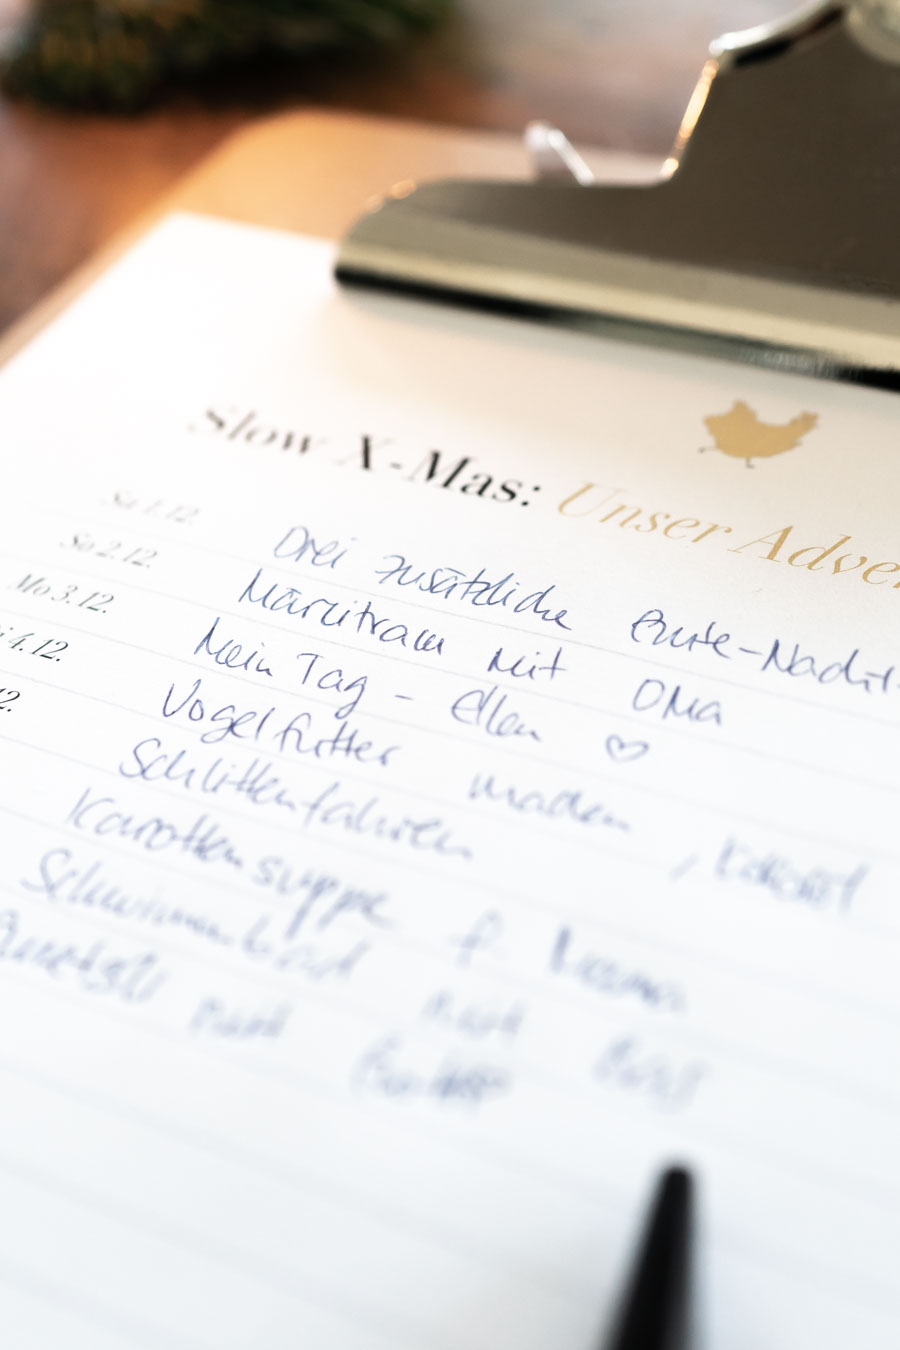 Slow X-Mas: Unser Adve
Sa 1.12. Drei zusätzliche Gute-Nacht-
So 2.12. Märzitram mit OMa
Mo 3.12. Mein Tag - Ellen ♡
i 4.12. Vogelfutter machen
2. Schlittenfahren
Karottensuppe f.
Schwimmbad mit
mit